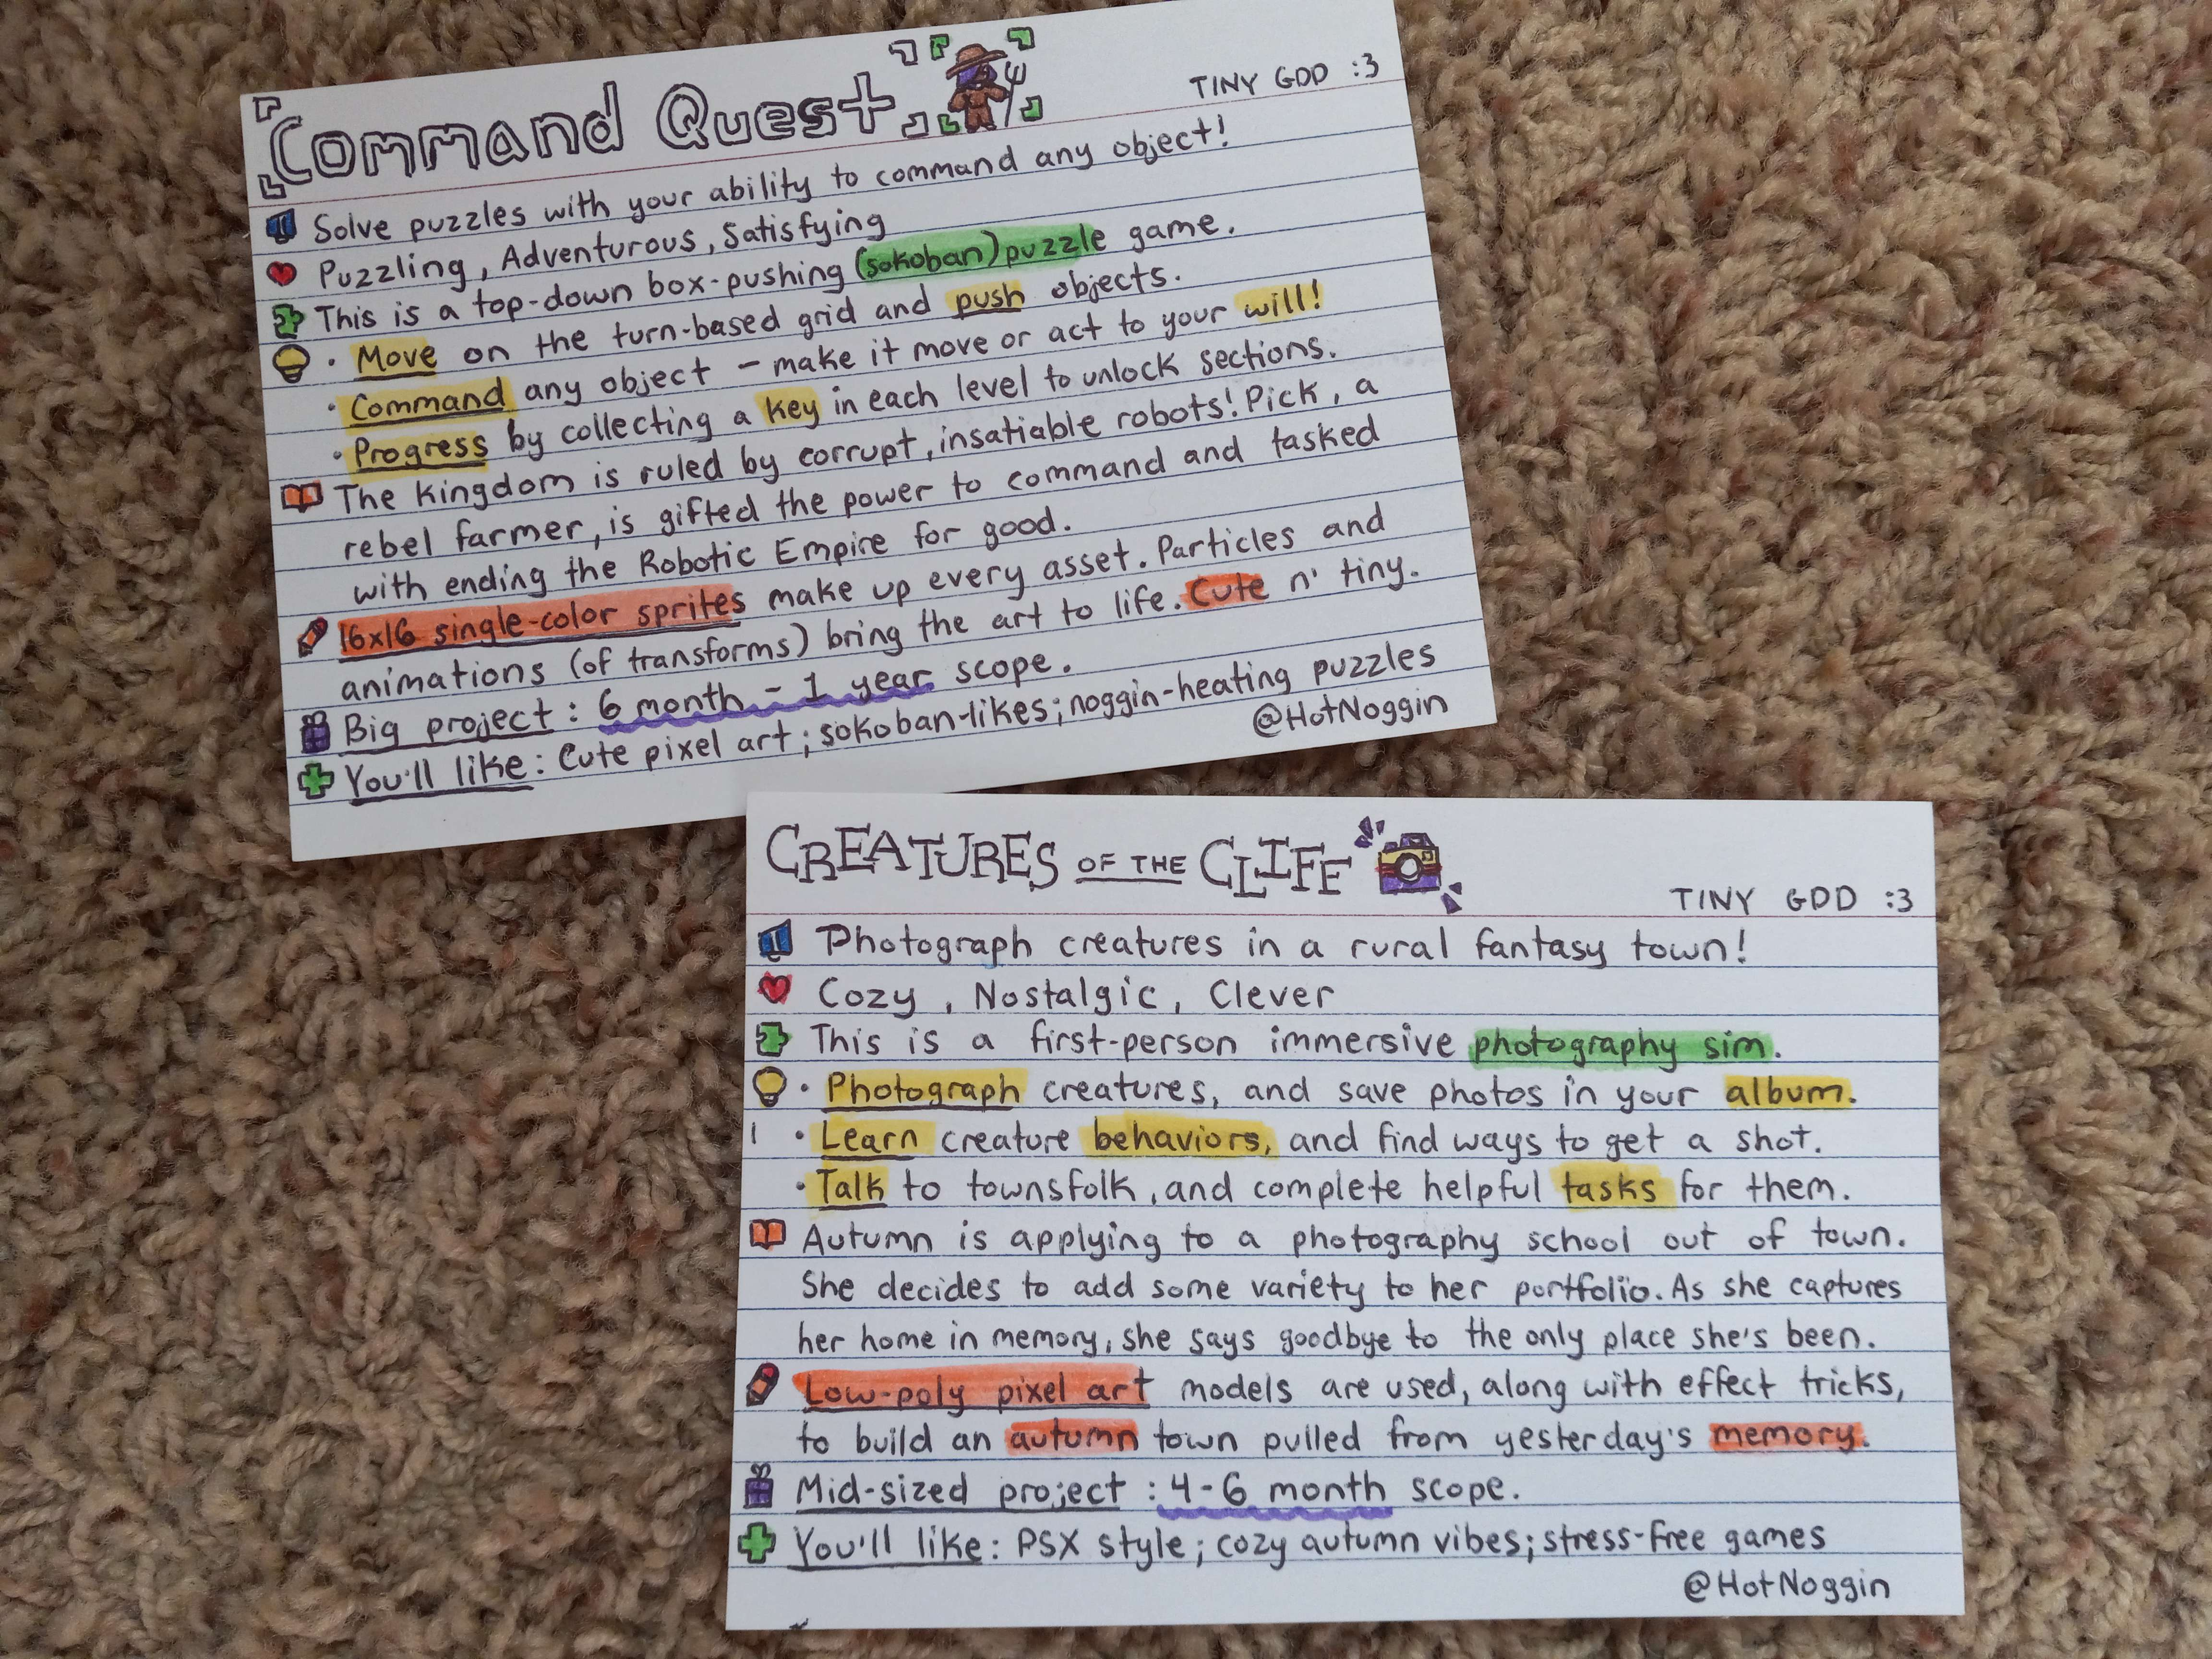 Command Quest
TINY GDD :3
Solve puzzles with your ability to command any object!
Puzzling, Adventurous, Satisfying
This is a top-down box-pushing (sokoban) puzzle game.
• Move on the turn-based grid and push objects.
• Command any object - make it move or act to your will!
• Progress by collecting a key in each level to unlock sections.
The Kingdom is ruled by corrupt, insatiable robots! Pick, a
rebel farmer, is gifted the power to command and tasked
with ending the Robotic Empire for good.
16x16 single-color sprites make up every asset. Particles and
animations (of transforms) bring the art to life. Cute n' tiny.
Big project: 6 month - 1 year scope.
You'll like: Cute pixel art; sokoban-likes; noggin-heating puzzles
@HotNoggin
CREATURES OF THE CLIFF
TINY GDD :3
Photograph creatures in a rural fantasy town!
Cozy, Nostalgic, Clever
This is a first-person immersive photography sim.
• Photograph creatures, and save photos in your album.
• Learn creature behaviors, and find ways to get a shot.
• Talk to townsfolk, and complete helpful tasks for them.
Autumn is applying to a photography school out of town.
She decides to add some variety to her portfolio. As she captures
her home in memory, she says goodbye to the only place she's been.
Low-poly pixel art models are used, along with effect tricks,
to build an autumn town pulled from yesterday's memory.
Mid-sized project: 4-6 month scope.
You'll like: PSX style; cozy autumn vibes; stress-free games
@HotNoggin